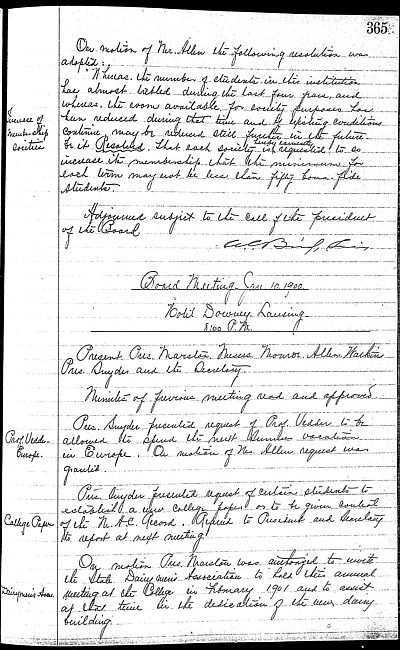 365
On motion of Mr. Allen the following resolution was
adopted:
"Whereas the number of students in this institution
has almost trebled during the last four years, and
whereas the room available for society purposes has
been reduced during that time and by existing conditions
continue, may be reduced still further in the future
be it Resolved, that each society is hereby earnestly requested to so
increase its membership that the minimum for
each term may not be less than fifty bona fide
students
Increase of
membership
societies
Adjourned subject to the call of the president
of the Board
Board Meeting Jan 10, 1900
Hotel Downey Lansing
8:00 P.M.
Present Pres. Marston, Messrs Monroe, Allen, Watkins
Pres. Snyder and the Secretary.
Minutes of previous meeting read and approved
Prof. Vedder
Europe.
Pres. Snyder presented request of Prof. Vedder to be
allowed to spend the next Summer vacation
in Europe. On motion of Mr. Allen request was
granted.
College Paper
Pres. Snyder presented request of certain students to
establish a new College paper or to be given control
of the M.A.C. Record. Referred to President and Secretary
to report at next meeting
Dairymen's Assn.
On motion Pres. Marston was authorized to invite
the State Dairymen's Association to hold their annual
meeting at the College in February 1901 and to assist
at that time in the dedication of the new dairy
building